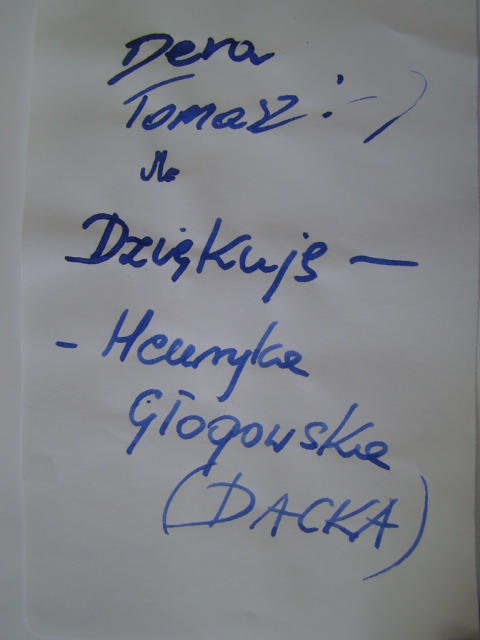 Dera
Tomasz :-)
Dziękuję —
- Henryka
Głogowska
(DACKA)